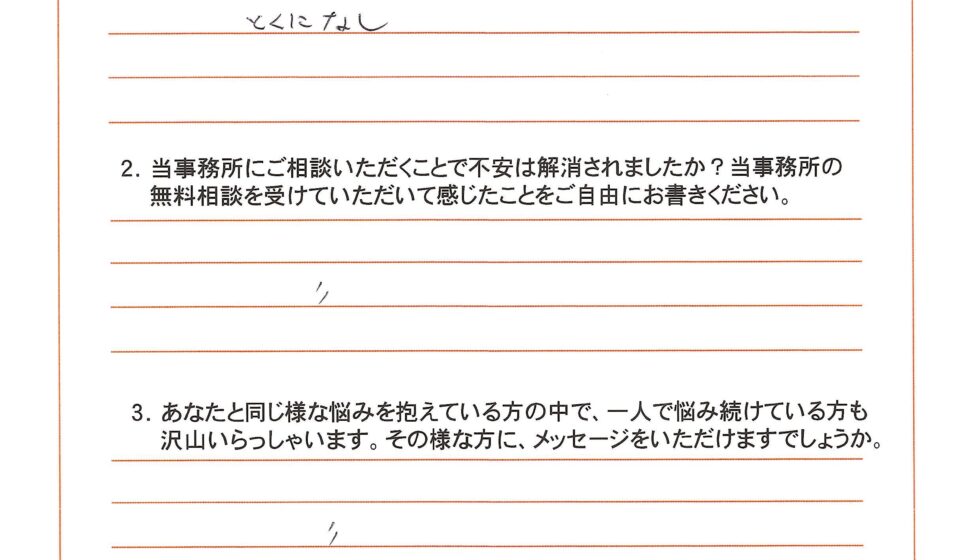 とくになし
2. 当事務所にご相談いただくことで不安は解消されましたか？当事務所の
無料相談を受けていただいて感じたことをご自由にお書きください。
〃
3. あなたと同じ様な悩みを抱えている方の中で、一人で悩み続けている方も
沢山いらっしゃいます。その様な方に、メッセージをいただけますでしょうか。
〃